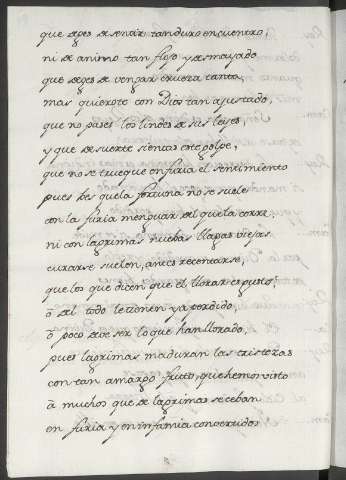 que dejes de sentir tan duro encuentro,
ni de animo tan flojo y desmayado
que dejes de vengar crueza tanta,
mas quierote con Dios tan ajustado,
que no pases los lindes de sus leyes,
y que de suerte sientas este golpe,
que no se trueque en furia el sentimiento
pues bes que la fortuna no se suele
con la furia menguar del que la corre
ni con lagrimas nuebas llagas viejas
curarse suelen, antes recentarse,
que los que dicen que el llorar es gusto,
ò del todo le tienen ya perdido,
ò poco deve ser lo que han llorado,
pues lagrimas maduran las tristezas
con tan amargo frutto, que hemos visto
à muchos que de lagrimas se ceban
en furia y en infamia convertidos